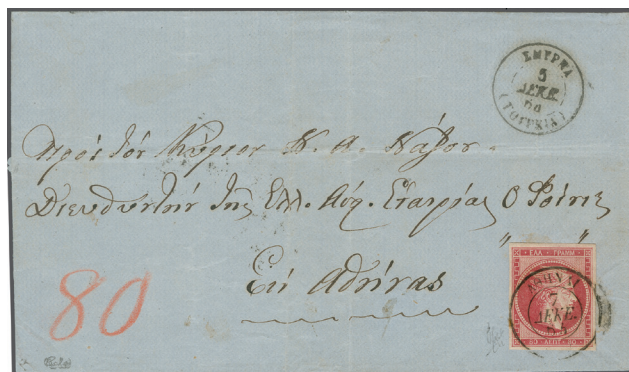 ΣΜΥΡΝΑ
5
ΔΕΚΕ
(ΤΟΥΡΚΙΑ)
Πρὸς τὸν Κύριον Ν. Α. Νάζον.
Διευθυντὴν τῆς Ἑλλ. Ἀσφ. Ἑταιρίας Ὁ Φοῖνιξ
" "
Εἰς Ἀθήνας
80
ΕΛΛ ΓΡΑΜΜ
ΑΘΗΝΑΙ
7
ΔΕΚΕ.
80 ΛΕΠΤ 80